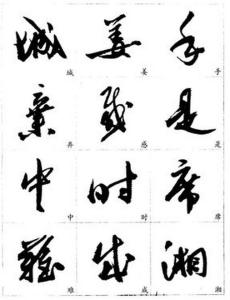 城 姜 手
城 姜 手
棄 感 是
弃 感 是
中 时 席
中 时 席
難 成 湘
难 成 湘